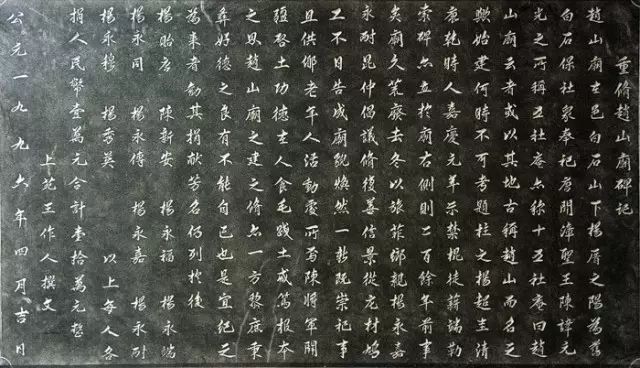 重修趙山廟碑記
趙山廟在邑白石山下楊厝之陽為舊
白石保社眾奉祀唐開漳聖王陳諱元
光之所稱五社庵亦稱十五社庵曰趙
山廟云者或以其地古稱趙山而名之
歟始建何時不可考題柱之楊超圭清
康乾時人嘉慶元年示禁棍徒藉端勒
索碑亦立於廟右側則二百餘年前事
矣廟久荒廢去冬以旅菲鄉親楊永嘉
永耐昆仲倡議修復善信景從庀材鳩
工不日告成廟貌煥然一新既崇祀事
且供鄉老年人活動處所焉陳將軍開
疆啓土功德在人食毛踐土咸篤報本
之思趙山廟之建之脩亦一方黎庶秉
彝好德之良有不能自已也是宜紀之
為來者勸其捐獻芳名仍列於後
楊貽唐 陳新安 楊永福 楊永端
楊永同 楊永傳 楊永嘉 楊永耐
楊永穆 楊秀英 以上每人各
捐人民幣壹萬元合計壹拾萬元整
上苑王作人撰文
公元一九九六年四月吉日